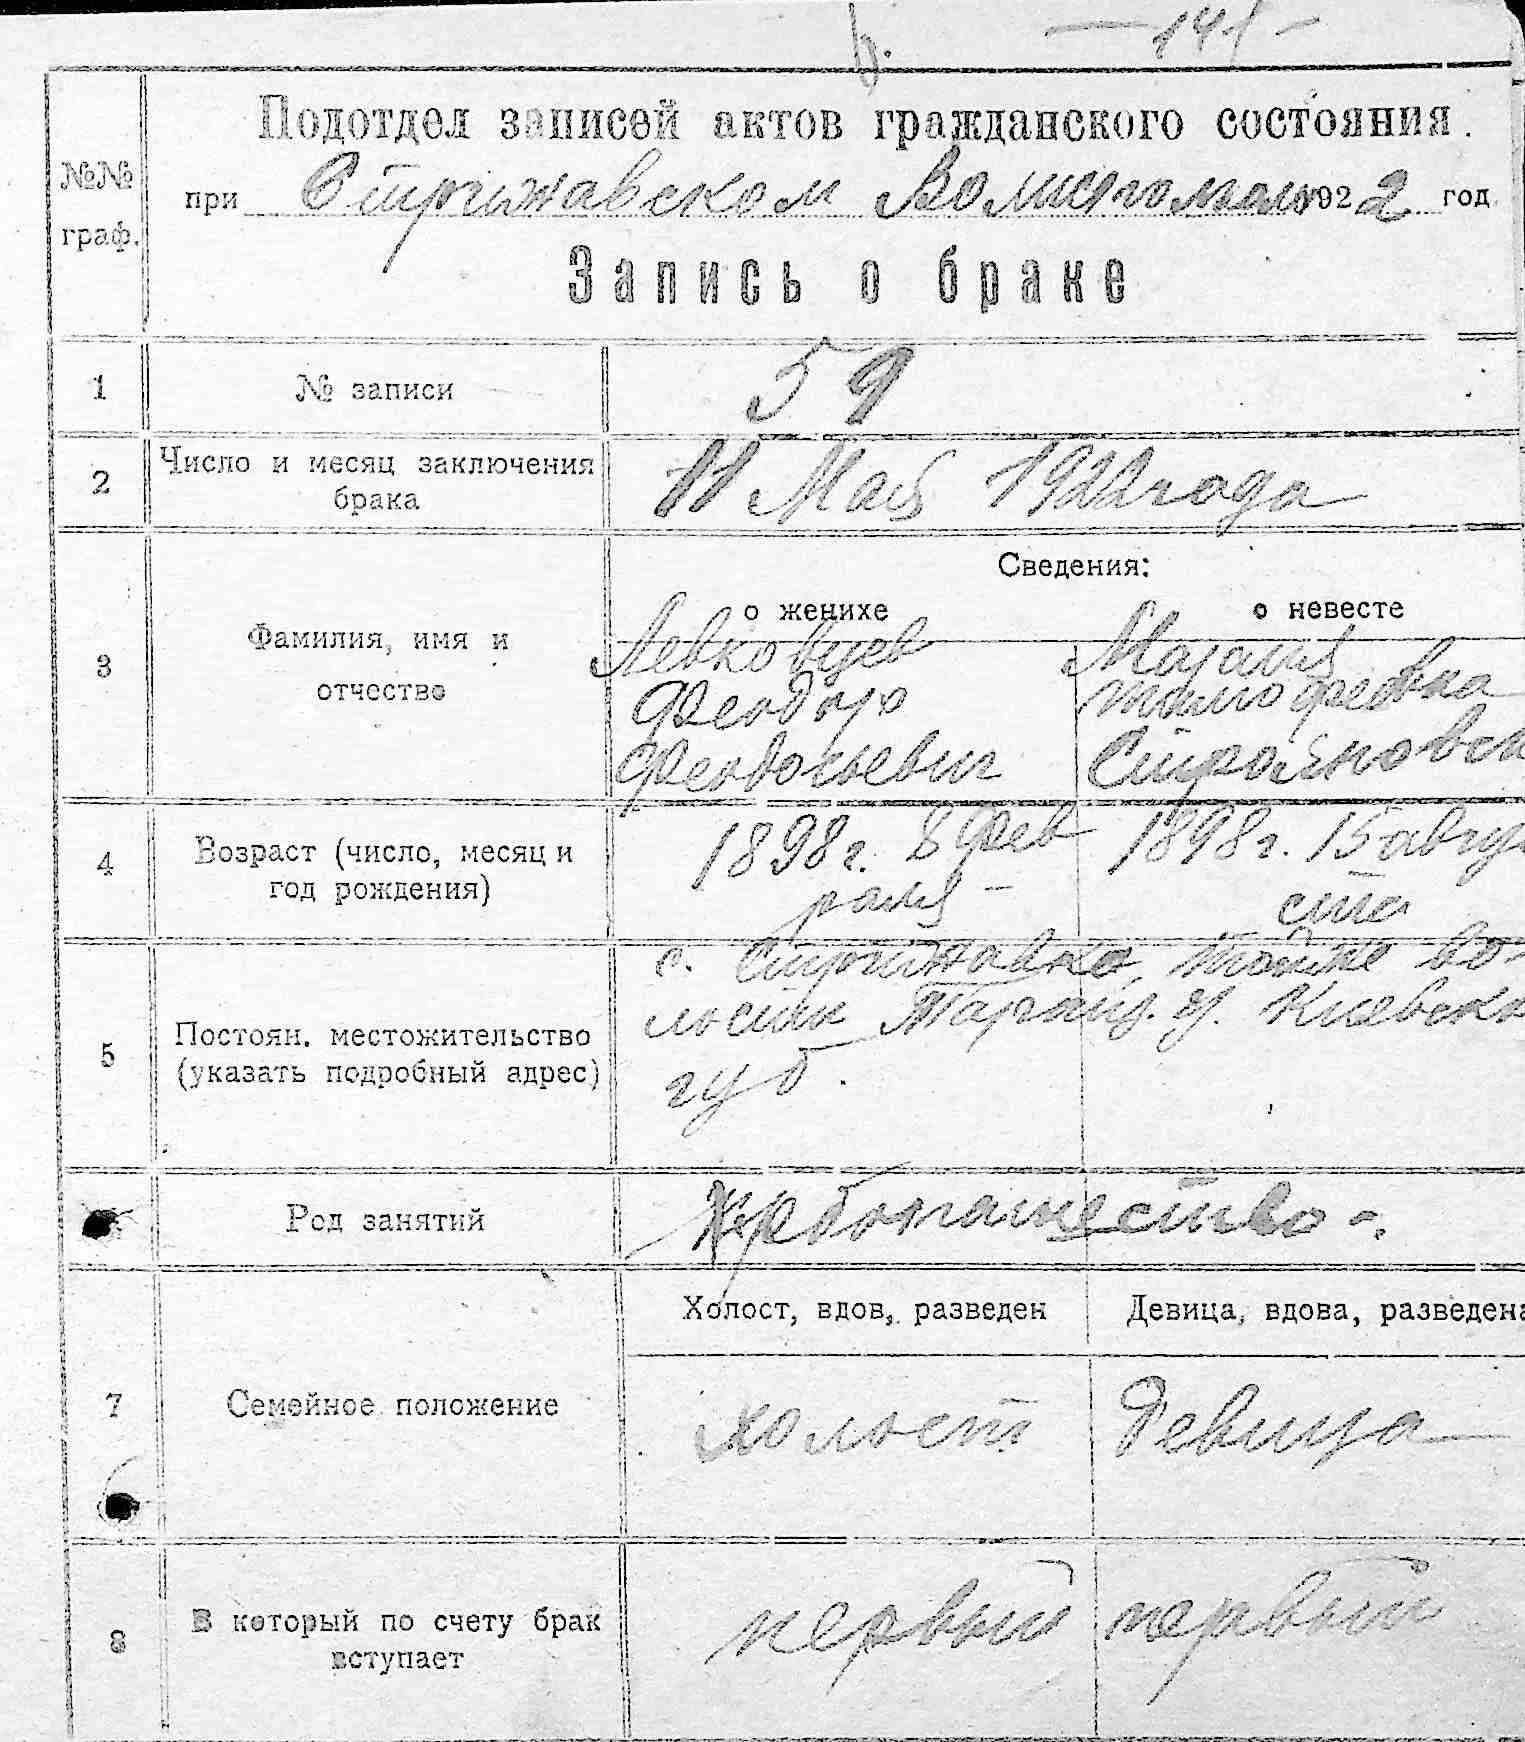 — 141 —
№№ граф.
Подотдел записей актов гражданского состояния.
при Стрижавском Волисполком 1922 год
Запись о браке
1 № записи 59
2 Число и месяц заключения брака 11 Мая 1922 года
Сведения:
о женихе о невесте
3 Фамилия, имя и отчество
Левковцев
Феодор
Феодосьевич
Тимофеевна
4 Возраст (число, месяц и год рождения)
1898 г. 8 Фев
раля –
1898 г. 15 авгу
ста
5 Постоян. местожительство (указать подробный адрес)
с. Стрижавка, тойже во-
лости Таращ. у. Киевск
губ.
Род занятий Хлебопашество -.
Холост, вдов, разведен Девица, вдова, разведена
7 Семейное положение холост Девица
8 В который по счету брак вступает первый первый